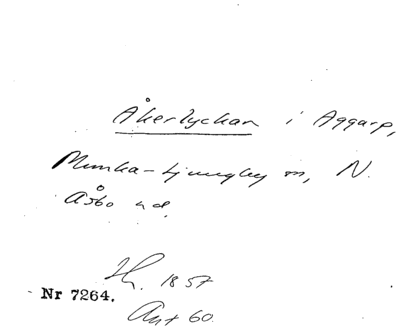 Åkerlyckan i Aggarp,
Munka-Ljungby sn, N.
Åsbo hd.
1857
Nr 7264.
Ant 60.